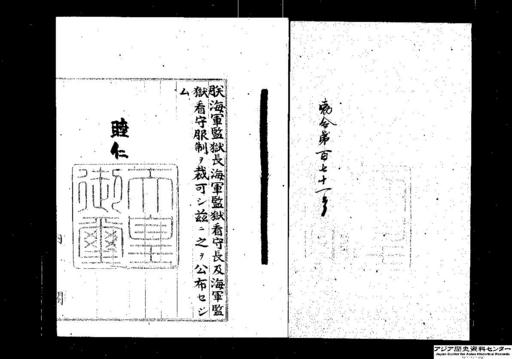 勅令第百七十一号
朕海軍監獄長海軍監獄看守長及海軍監
獄看守服制ヲ裁可シ茲ニ之ヲ公布セシ
ム
睦仁
天皇御璽
内閣
アジア歴史資料センター
Japan Center for Asian Historical Records